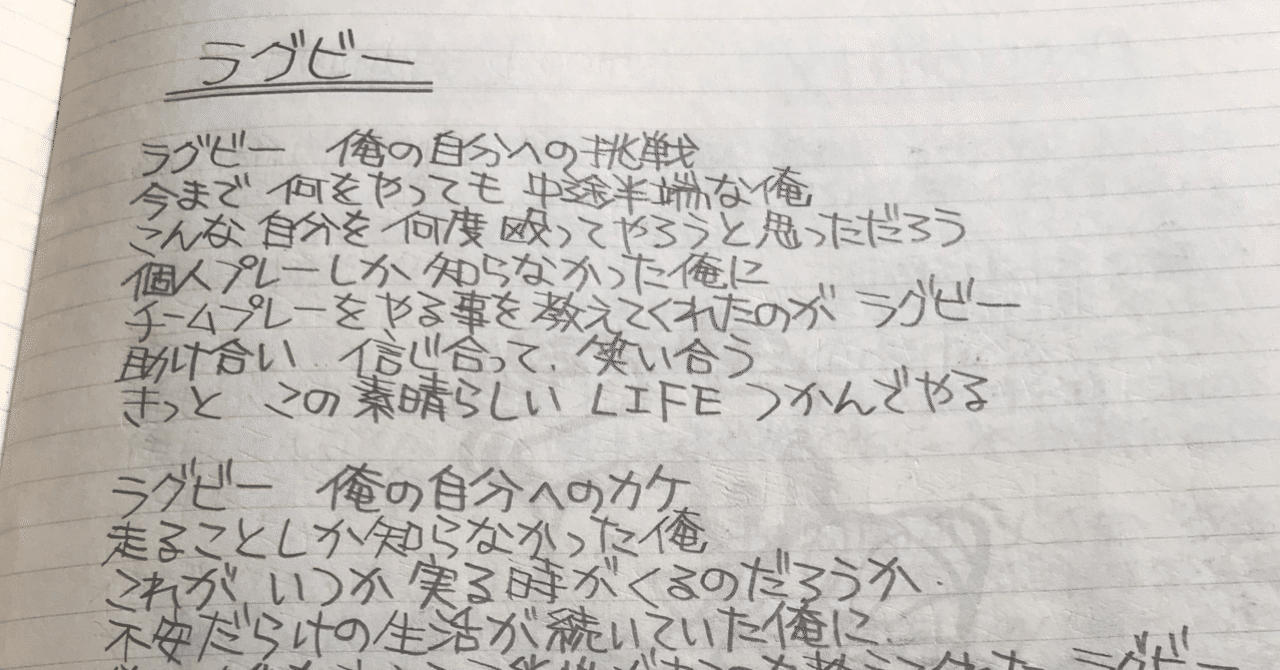 ラグビー
ラグビー 俺の自分への挑戦
今まで 何をやっても 中途半端な俺
こんな 自分を 何度 殴ってやろうと思っただろう
個人プレーしか 知らなかった俺に
チームプレーをやる事を教えてくれたのが ラグビー
助け合い 信じ合って、笑い合う
きっと この素晴らしい LIFE つかんでやる
ラグビー 俺の自分へのカケ
走ることしか知らなかった俺
これが いつか 実る時がくるのだろうか.
不安だらけの生活が続いていた俺に
ラグビー